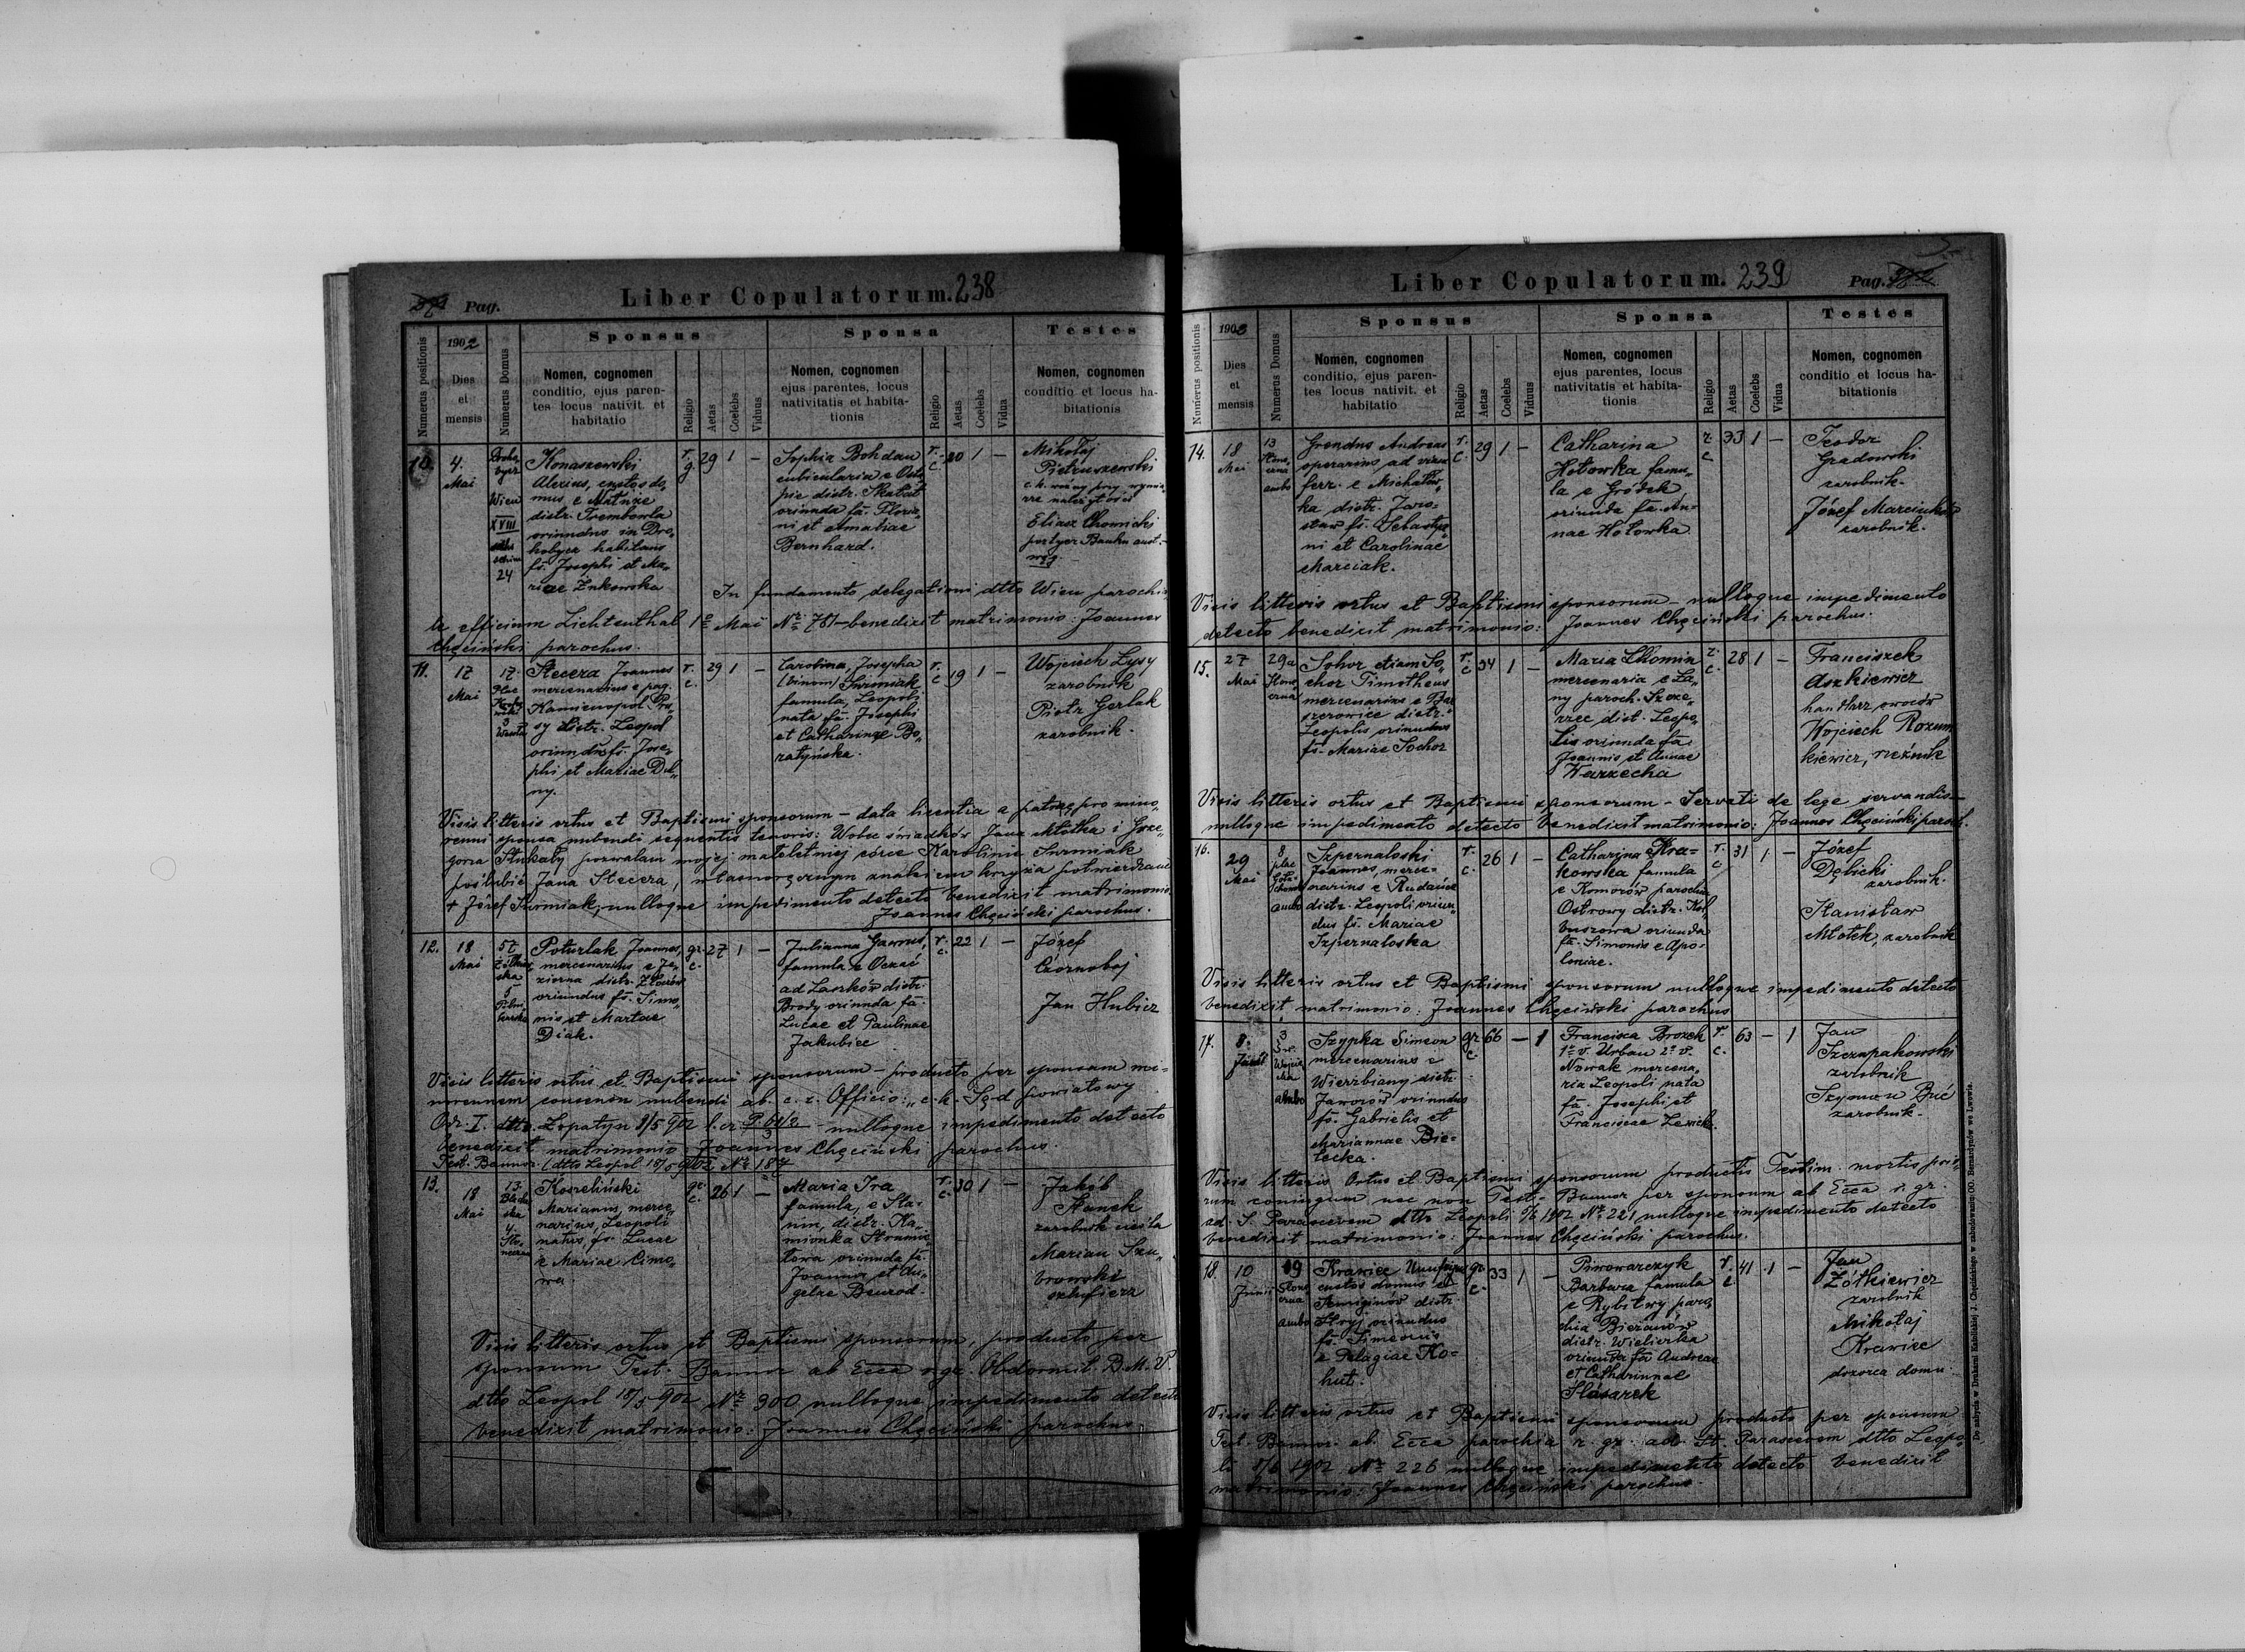 Pag.
Liber Copulatorum. 238
Numerus positionis
1902
Dies
et
mensis
Numerus Domus
Sponsus
Nomen, cognomen
conditio, ejus paren-
tes locus nativit. et
habitatio
Religio
Aetas
Coelebs
Viduus
Sponsa
Nomen, cognomen
ejus parentes, locus
nativitatis et habita-
tionis
Religio
Aetas
Coelebs
Vidua
Testes
Nomen, cognomen
conditio et locus ha-
bitationis
10.
4.
Mai
Wien
XVIII
24
Konaszewski
Alexius, custos do,
mus, e
distr. Trembowla
oriundus in Dro,
hobycz habitans
fs. Josephi et Ma,
riae Żukowska
r.
g.
29
1
—
Sophia Bohdan
cubicularia e
distr. Skałat
oriunda fa. Floria
ni et Amaliae
Bernhard.
r.
c.
20
1
—
Mikołaj
Pietruszewski
Eliasz Chomicki
portyer Banku aust.-
węg.
In fundamento delegationi dtto Wien parochia
le officium Lichtenthal 1º Mai Nº 781 — benedixit matrimonio: Joannes
Chęciński parochus.
11.
17
Mai
17.
Plac
3
Stecera Joannes
mercenarius e pag.
Kamienopol Pru,
sy distr. Leopol
oriundus fs. Jose,
phi et Mariae Dol,
ny.
r.
c.
29
1
—
Carolina, Josepha
(binom) Surmiak
famula, Leopoli
nata fa. Josephi
et Catharinae Bo,
ratyńska.
r.
c
19
1
—
Wojciech Łysy
zarobnik
Piotr Gerlak
zarobnik.
Visis litteris ortus et Baptismi sponsorum — data licentia a patre pro mino,
renni sponsa nubendi sequentis tenoris: Wobec świadków Jana Młotka i Grze,
gorza Stukały pozwalam mojej małoletniej córce Karolinie Surmiak
poślubić Jana Stecera, własnoręcznym znakiem krzyża potwierdzam
+ Józef Surmiak, nulloque impedimento detecto benedixit matrimonio
Joannes Chęciński parochus.
12.
18
Mai
57
Żółkiew
ska
5
Poturlak Joannes,
mercenarius e Je,
zierna distr. Złoczów
oriundus fs. Simo,
nis et Martae
Diak.
gr.
c.
27
1
—
Julianna Gawrus,
famula e
ad Laszków distr.
Brody oriunda fa.
Lucae et Paulinae
Jakubiec
r.
c.
22
1
—
Józef
Czornobaj
Jan Hubicz
Visis litteris ortus et Baptismi sponsorum — producto per sponsam mi-
norennem consensu nubendi ab c. r. Officio: „c. k. Sąd powiatowy
Odz. I. dtto Łopatyn 8/5 902 l. cz
nulloque impedimento detecto
benedixit matrimonio Joannes Chęciński parochus.
Test. Bannor. (dtto Leopol 18/5 902 Nº 187
13.
18
Mai
13.
4.
Sło,
neczna
Koszeliński
Marianus, merce,
narius, Leopoli
natus, fs. Lucae
e Mariae Cimo,
wa
gr.
c.
26
1
—
Maria Ira
famula, e Sta,
nin, distr. Ka,
mionka Strumi,
łowa oriunda fa.
Joannis et An,
gelae Beurod.
r.
c.
30
1
—
Jakób
Stanek
zarobnik
Marian Szu,
browski
szlufierz
Visis litteris ortus et Baptismi sponsorum, producto per
sponsum Test. Bannor ab Ecca r. gr. Obdormit. B. M. V.
dtto Leopol 18/5 902 Nº 300 nulloque impedimento detecto
benedixit matrimonio: Joannes Chęciński parochus
Liber Copulatorum. 239
Pag.
Numerus positionis
1902
Dies
et
mensis
Numerus Domus
Sponsus
Nomen, cognomen
conditio, ejus paren-
tes locus nativit. et
habitatio
Religio
Aetas
Coelebs
Viduus
Sponsa
Nomen, cognomen
ejus parentes, locus
nativitatis et habita-
tionis
Religio
Aetas
Coelebs
Vidua
Testes
Nomen, cognomen
conditio et locus ha-
bitationis
14.
18
Mai
13
ambo
Grendus Andreas
operarius ad viam
ferr. e Michałów,
ka distr. Jaro=
sław fs. Sebastya,
ni et Carolinae
Marciak.
r.
c.
29
1
—
Catharina
Hotowka famu,
la e Gródek
oriunda fa. An=
nae Hotowka
r.
c
33
1
—
Teodor
Gradowski
zarobnik.
Józef Marciuków
zarobnik.
Visis litteris ortus et Baptismi sponsorum — nulloque impedimento
detecto benedixit matrimonio: Joannes Chęciński parochus.
15.
27
Mai
29a
Słone
czna
Sohor etiam So,
chor Timotheus
mercenarius e Bar
szczowice distr.
Leopolis oriundus
fs. Mariae Sochor
r.
c
34
1
—
Maria Chomin
mercenaria e
ny paroch. Szcze,
rzec dist. Leopo,
lis oriunda fa.
Joannis et Annae
Warzecha
r.
c.
28
1
—
Franciszek
Aszkiewicz
handlarz owoców
Wojciech Rozum
kiewicz, rzeźnik
Visis litteris ortus et Baptismi sponsorum — Servati de lege servandis —
nulloque impedimento detecto benedixit matrimonio: Joannes Chęciński paroch.
16.
29
Mai
8
plac
ambo
Szpernaloski
Joannes, merce=
narius e Rudańce
distr. Leopoli oriun,
dus fs. Mariae
Szpernaloska
r.
c.
26
1
—
Catharina Kra=
kowska famula
e Komorów parochia
Ostrowy distr. Kol,
buszowa oriunda
fa. Simonis e Apo=
loniae.
r.
c
31
1
—
Józef
Dębicki
zarobnik.
Stanisław
Młotek, zarobnik
Visis litteris ortus et Baptismi sponsorum nulloque impedimento detecto
benedixit matrimonio: Joannes Chęciński parochus
17.
8.
Junii
3
Św.
Wojcie
cha
ambo
Szypka Simeon
mercenarius e
Wierzbiany distr.
Jaworów oriundus
fs. Gabrielis et
Mariannae Bie=
lecka.
gr
c.
66
—
1
Francisca Brozek
1º v. Urban 2º v.
Nowak mercena,
ria Leopoli nata
fa. Josephi et
Franciscae
r.
c.
63
—
1
Jan
Szczupakowski
zarobnik
Szymon Bić
zarobnik.
Visis litteris Ortus et Baptismi sponsorum productis Testim. mortis prio,
rum coniugum nec non Test= Bannor per sponsum ab Ecca r. gr.
ad S. Parascevem dtto Leopoli 1902 Nº 221 nulloque impedimento detecto
benedixit matrimonio: Joannes Chęciński parochus.
18.
10
Junii
19
Słone
czna
ambo
Krawiec
custos domus e
distr.
Stryj oriundus
fs. Simeonis
e Pelagiae Ko=
hut.
gr
c.
33
1
—
Piwowarczyk
Barbara famula
e Rybitwy paro,
chia Bieżanów
distr. Wieliczka
oriunda fa Andreae
et Catharinnae
Ślósarek
r.
c
41
1
—
Jan
Żółkiewicz
zarobnik
Mikołaj
Krawiec
dozorca domu
Visis litteris ortus et Baptismi sponsorum producto per sponsum
Test. Bannor. ab Ecca parochia r. gr. ad St. Parascevem dtto Leopo,
li 8/6 1902 Nº 226 nulloque impedimento detecto benedixit
matrimonio: Joannes Chęciński parochus.
Do nabycia w Drukarni Katolickiej J. Chęcińskiego w zabudowaniu OO. Bernardynów we Lwowie.